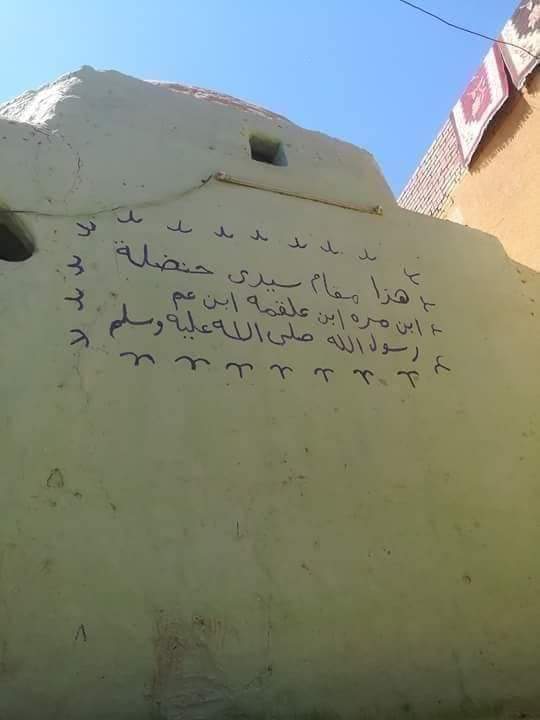 هذا مقام سيدى حنضلة
ابن مره ابن علقمه ابن عم
رسول الله صلى الله عليه وسلم